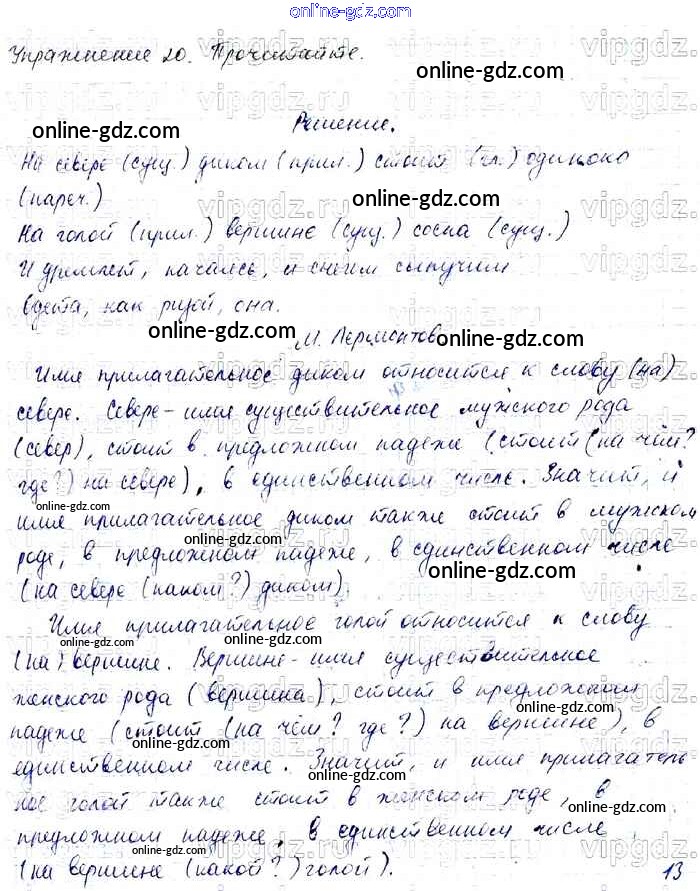 online-gdz.com
Упражнение 20. Прочитайте.
online-gdz.com
Решение.
online-gdz.com
На севере (сущ.) диком (прил.) стоит (гл.) одиноко
(нареч.)
online-gdz.com
На голой (прил.) вершине (сущ.) сосна (сущ.)
И дремлет, качаясь, и снегом сыпучим
Одета, как ризой, она.
online-gdz.com
М. Лермонтов
online-gdz.com
Имя прилагательное диком относится к слову (на)
севере. Севере - имя существительное мужского рода
online-gdz.com
(север), стоит в предложном падеже (стоит (на чём?
где?) на севере), в единственном числе. Значит, и
online-gdz.com
имя прилагательное диком также стоит в мужском
роде, в предложном падеже, в единственном числе
online-gdz.com
(на севере (каком?) диком).
Имя прилагательное голой относится к слову
online-gdz.com
online-gdz.com
(на) вершине. Вершине - имя существительное
женского рода (вершина), стоит в предложном
online-gdz.com
падеже (стоит (на чём? где?) на вершине), в
online-gdz.com
единственном числе. Значит, и имя прилагатель-
online-gdz.com
ное голой также стоит в женском роде, в
предложном падеже, в единственном числе
online-gdz.com
online-gdz.com
(на вершине (какой?) голой).
13